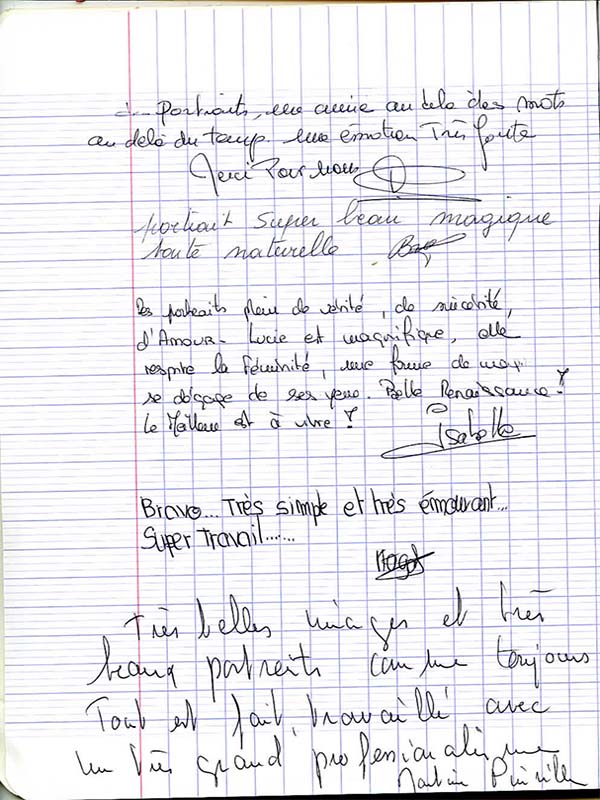 Portraits, une amie au delà des mots
au delà du temps. une émotion Très forte
Merci Pour nous
portrait super beau magique
toute naturelle
Des portraits plein de vérité, de sincérité,
d'Amour - Lucie est magnifique, elle
respire la féminité, une forme de
se dégage de ses yeux. Belle Renaissance!
Le Meilleur est à vivre!
Isabelle
Bravo... Très simple et très émouvant...
Super Travail......
Très belles images et très
beaux portraits comme toujours
Tout est fait, travaillé avec
un très grand professionalisme